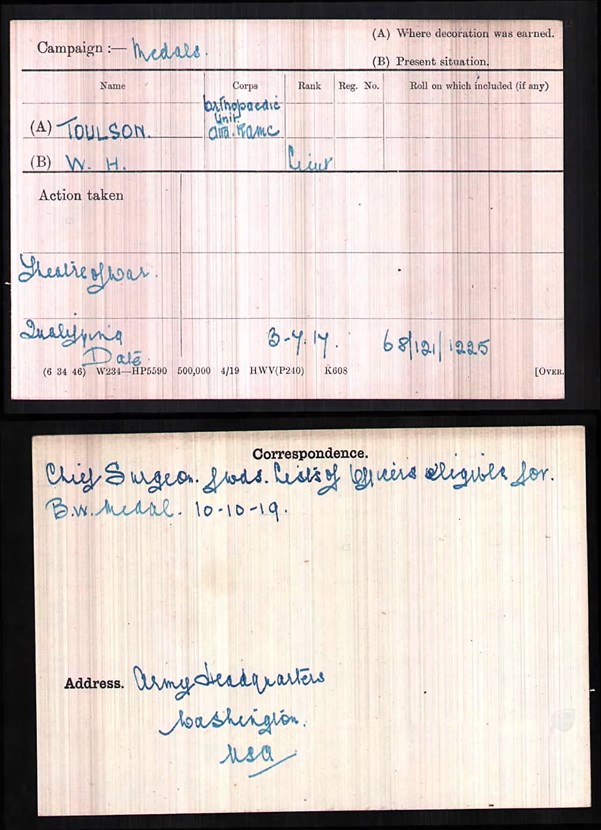 (A) Where decoration was earned.
Campaign :— Medals.
(B) Present situation.
Name Corps Rank Reg. No. Roll on which included (if any)
(A) TOULSON. Orthopaedic
Unit
att. RAMC
(B) W. H. Lieut
Action taken
Theatre of War.
Qualifying
Date. 3-7.17. 68/121/1225
(6 34 46) W234—HP5590 500,000 4/19 HWV(P240) K608 [OVER.
Correspondence.
Chief Surgeon. fwds. Lists of Officers eligible for.
B.W. Medal. 10-10-19.
Address. Army Headquarters
Washington.
USA